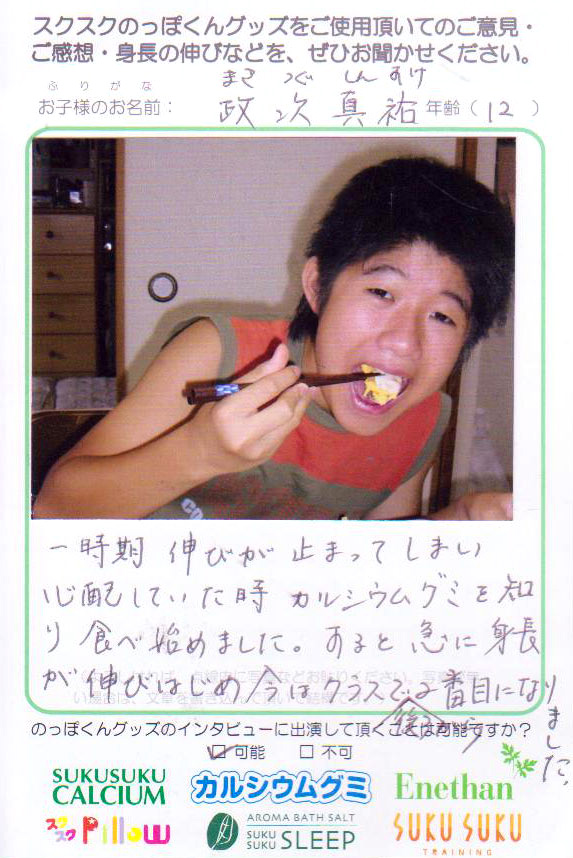 スクスクのっぽくんグッズをご使用頂いてのご意見・
ご感想・身長の伸びなどを、ぜひお聞かせください。
ふりがな まさ つぐ しんすけ
お子様のお名前： 政次 真祐 年齢（12）
一時期 伸びが 止まってしまい
心配していた時 カルシウムグミを知
り 食べ始めました。すると 急に 身長
が 伸びはじめ 今はクラスで後ろから2番目になり
ました。
のっぽくんグッズのインタビューに出演して頂くことは可能ですか？
☑可能 □不可
SUKUSUKU
CALCIUM
カルシウムグミ
Enethan
スクスク Pillow
AROMA BATH SALT
SUKU
SUKU SLEEP
SUKU SUKU
TRAINING